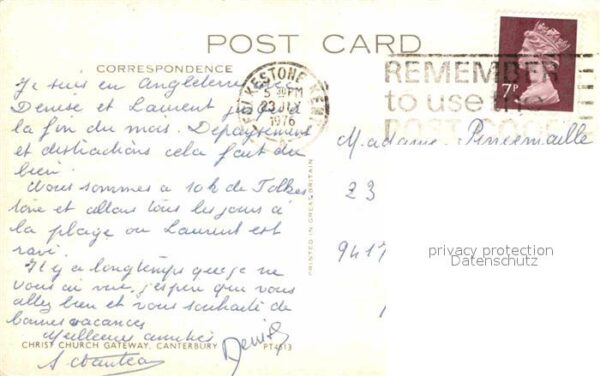 POST CARD
CORRESPONDENCE
Je suis en Angleterre avec
Denise et Laurent jusqu'à
la fin du mois. Dépaysement
et distractions cela fait du
bien.
Nous sommes à 10 k de Folkes
tone et allons tous les jours à
la plage où Laurent est
ravi.
Il y a longtemps que je ne
vous ai vue, j'espère que vous
allez bien et vous souhaite de
bonnes vacances
Meilleures amitiés
Denise
CHRIST CHURCH GATEWAY, CANTERBURY PT4613
PRINTED IN GREAT BRITAIN
FOLKESTONE KENT
PM
23 JLY
1976
REMEMBER
to use the
POST CODE
7P
Madame
23
9417
privacy protection
Datenschutz